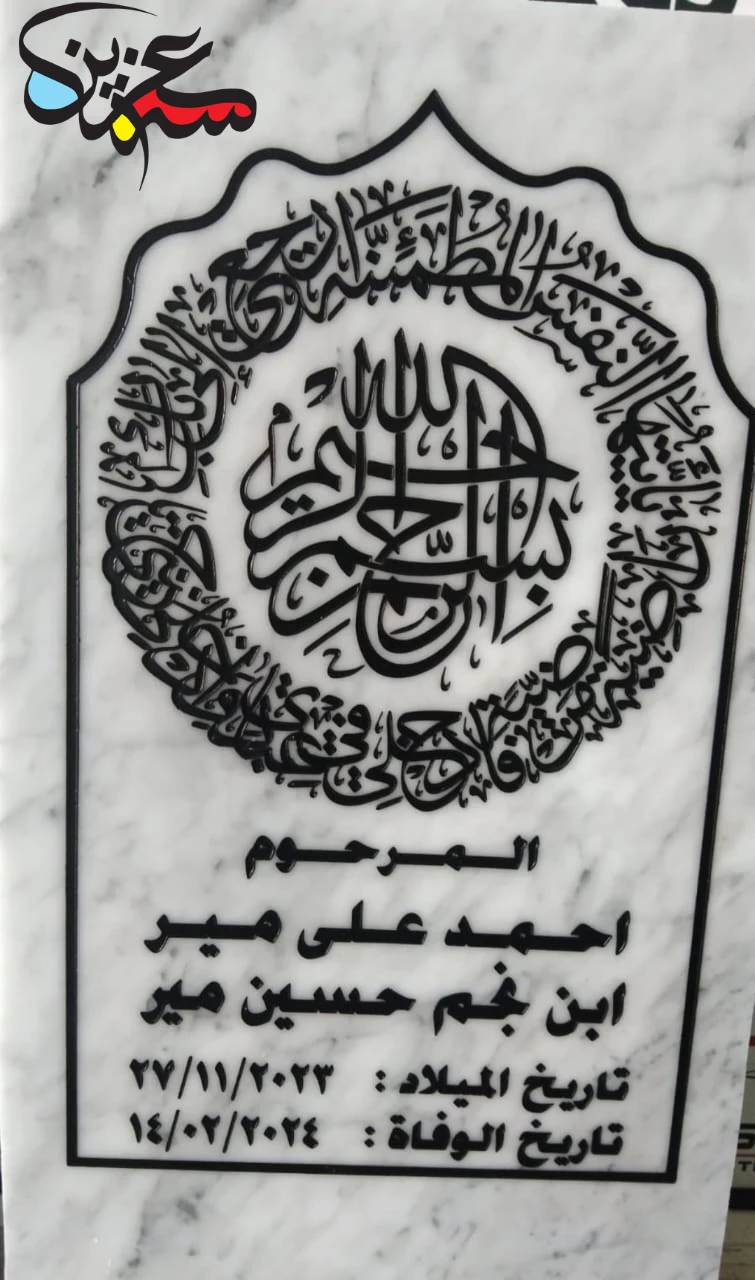 يا أيتها النفس المطمئنة ارجعي إلى ربك راضية مرضية فادخلي في عبادي وادخلي جنتي
بسم الله الرحمن الرحيم
المرحوم
احمد على مير
ابن نجم حسين مير
تاريخ الميلاد : ٢٧/١١/٢٠٢٣
تاريخ الوفاة : ١٤/٠٢/٢٠٢٤